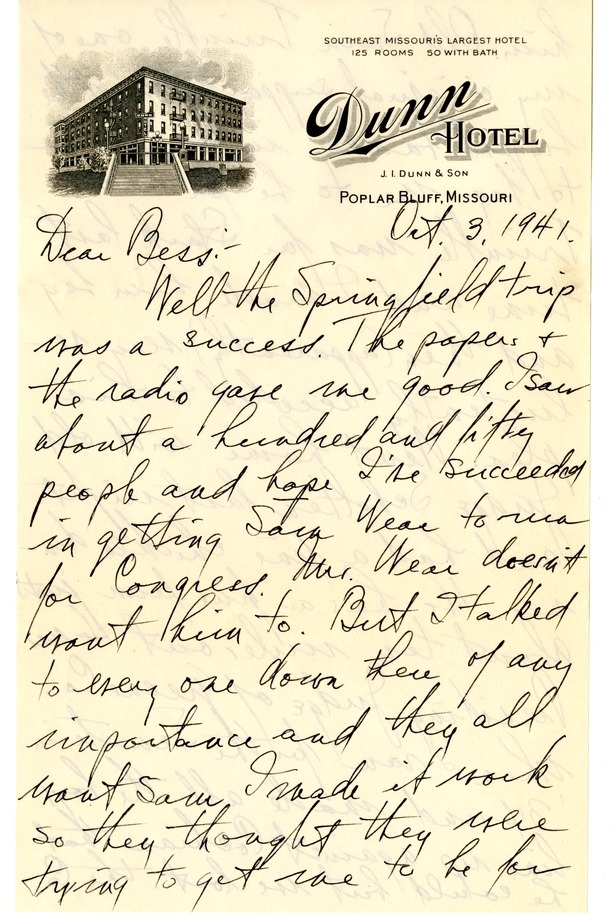 SOUTHEAST MISSOURI'S LARGEST HOTEL
125 ROOMS 50 WITH BATH
Dunn
HOTEL
J. I. DUNN & SON
POPLAR BLUFF, MISSOURI
Oct. 3, 1941.
Dear Bess:-
Well the Springfield trip
was a success. The papers +
the radio gave me good. I saw
about a hundred and fifty
people and hope I've succeeded
in getting Sam Wear to run
for Congress. Mrs. Wear doesn't
want him to. But I talked
to every one down there of any
importance and they all
want Sam. I made it work
so they thought they were
trying to get me to be for